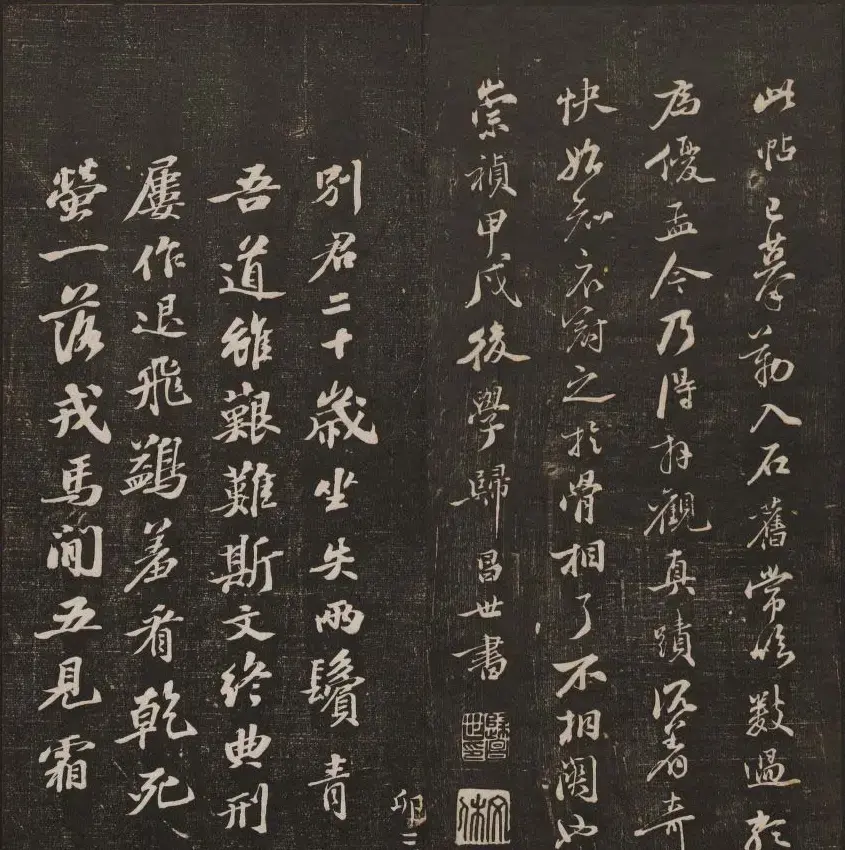 此帖已摹勒入石舊常臨數過於
為優孟今乃得拜觀真蹟沉着奇
快始知衣冠之於骨相了不相關也
崇禎甲戌後學歸昌世書
歸昌世印
文休
卯二
別君二十歲坐失兩鬢青
吾道雖艱難斯文終典刑
屢作退飛鷁羞看乾死
螢一落戎馬間五見霜